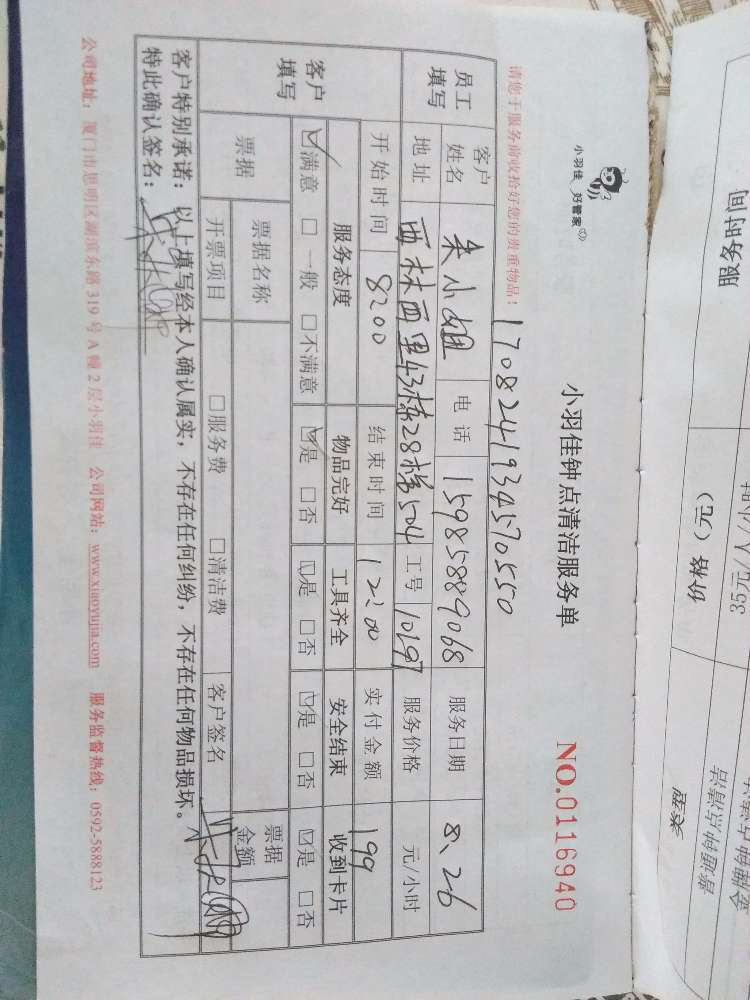 小羽佳 好管家
小羽佳钟点清洁服务单
NO.0116940
请您于服务前收拾好您的贵重物品！
1708241934570550
员工填写 客户姓名 朱小姐 电话 15985889068 服务日期 8、26
地址 西林西里43栋28梯504 工号 10197 服务价格 元/小时
客户填写 开始时间 8:00 结束时间 12:00 实付金额 199
服务态度 物品完好 工具齐全 安全结束 收到卡片
☑满意 □一般 □不满意 ☑是 □否 ☑是 □否 ☑是 □否 ☑是 □否
票据 票据名称 票据金额
开票项目 □服务费 □清洁费 客户签名
客户特别承诺：以上填写经本人确认属实，不存在任何纠纷，不存在任何物品损坏。
特此确认签名：
公司地址：厦门市思明区湖滨东路319号A幢2层小羽佳 公司网站：www.xiaoyujia.com 服务监督热线：0592-5888123
服务时间
价格（元）
35元/人/小时
类型
普通钟点清洁
金牌钟点清洁